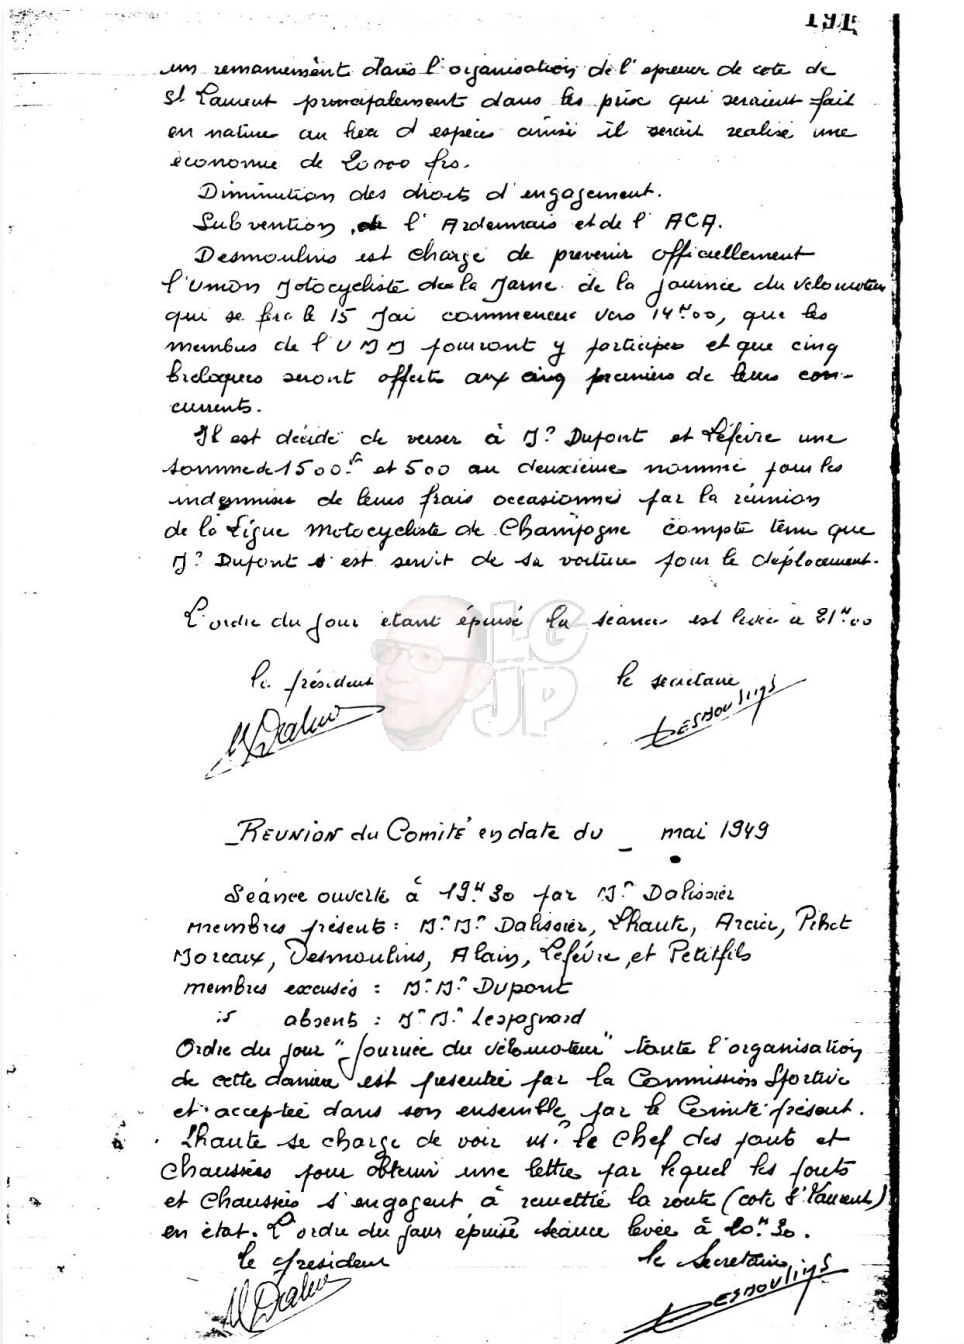 191
un remaniement dans l'organisation de l'epreuve de cote de
St Laurent principalement dans les prix qui seraient fait
en nature au lieu d'espèces ainsi il serait realisé une
économie de 20000 frs.
Diminution des droits d'engagement.
Subvention de l'Ardennais et de l'ACA.
Desmoulins est chargé de prevenir officiellement
l'Union Motocycliste de la Marne de la journée du vélomoteur
qui se fera le 15 Mai commencer vers 14H00, que les
membres de l'UMM pourront y participer et que cinq
breloques seront offerts aux cinq premiers de leurs con-
currents.
Il est décidé de verser à Mr Dupont et Lefévre une
somme de 1500fr et 500 au deuxième nommé pour les
indemniser de leurs frais occasionnés par la réunion
de la Ligue Motocycliste de Champagne compte tenu que
Mr Dupont s'est servit de sa voiture pour le déplacement.
L'ordre du jour étant épuisé la séance est levée à 21H00
le président
le secrétaire
LG
JP
DESMOULINS
REUNION du Comité en date du _ mai 1949
Séance ouverte à 19H30 par Mr Dalissier
membres présents : Mr Mr Dalissier, Lhaute, Arcier, Pihet
Moreaux, Desmoulins, Alain, Lefévre, et Petitfils
membres excusés : Mr Mr Dupont
absents : Mr Mr Lespagnard
Ordre du jour "Journée du vélomoteur" toute l'organisation
de cette dernière est presentée par la Commission Sportive
et acceptée dans son ensemble par le Comité présent.
Lhaute se charge de voir Mr le Chef des ponts et
Chaussées pour obtenir une lettre par lequel les ponts
et Chaussées s'engagent à remettre la route (cote St Laurent)
en état. L'ordre du jour épuisé séance levée à 20H30.
le president
le Secretaire
DESMOULINS